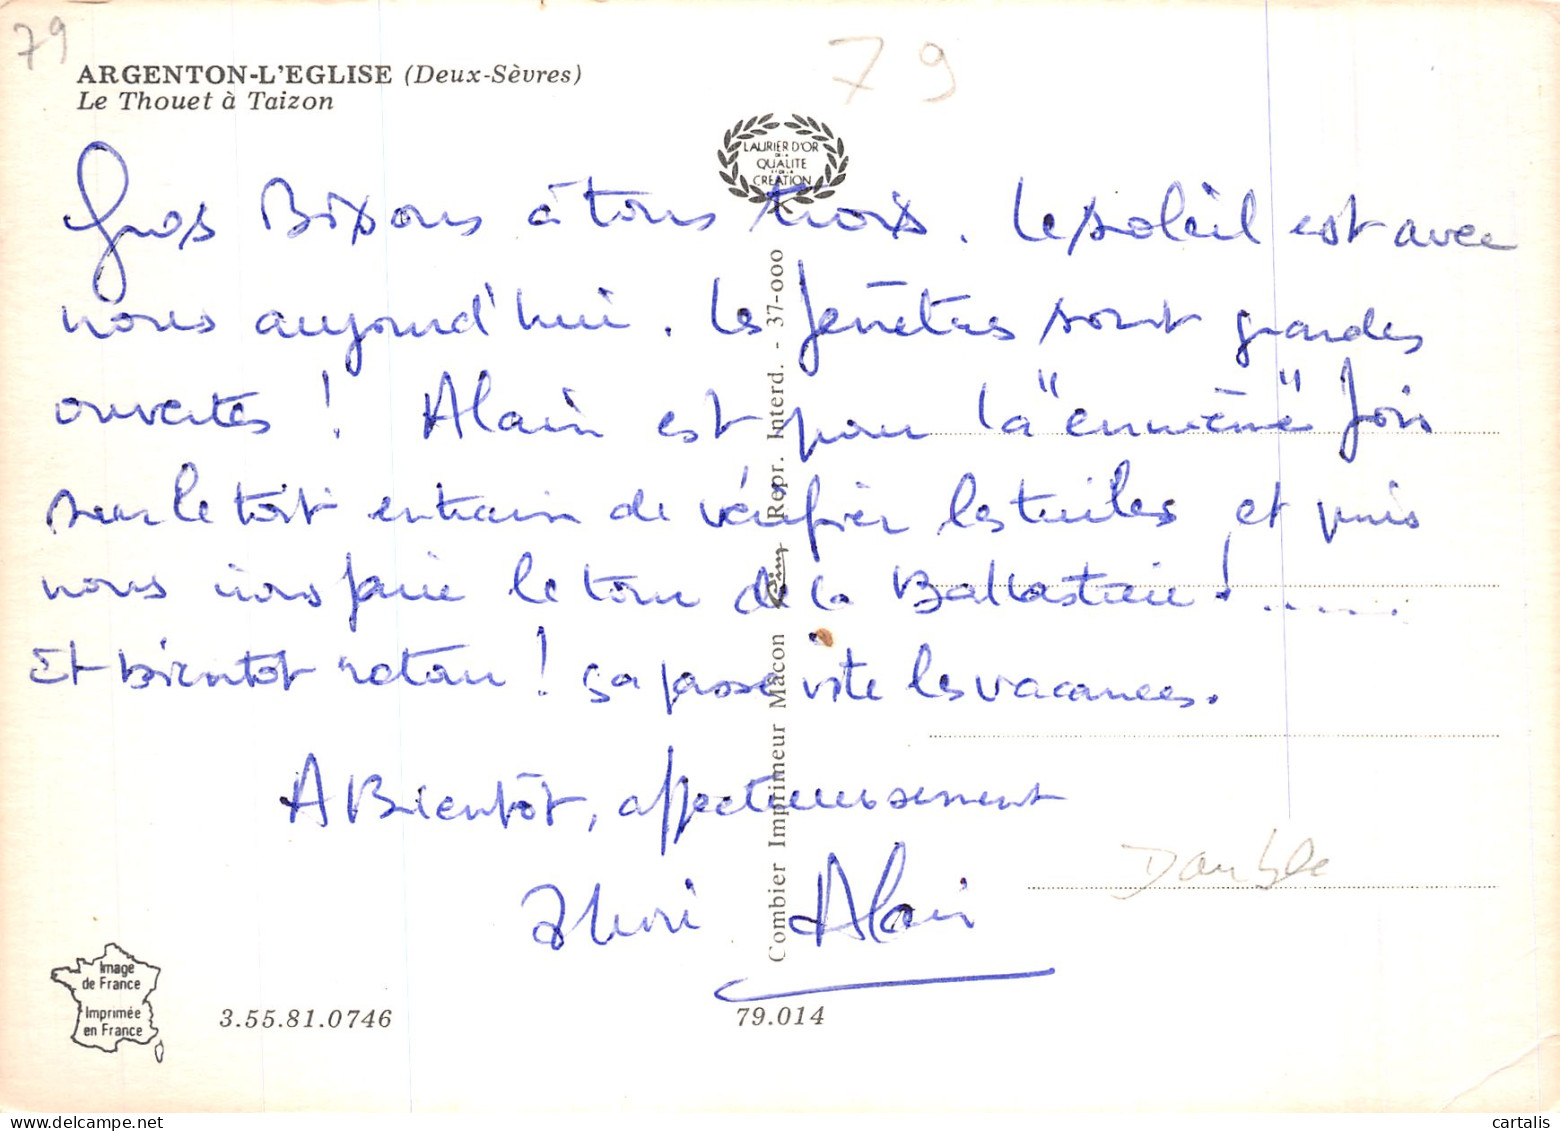 79
79
ARGENTON-L'EGLISE (Deux-Sèvres)
Le Thouet à Taizon
LAURIER D'OR
DE LA
QUALITE
ET DE LA
CREATION
Gros Bisous à tous trois. Le soleil est avec
nous aujourd'hui. Les fenêtres sont grandes
ouvertes ! Alain est pour la "ennième" fois
sur le toit entrain de vérifier les tuiles et puis
nous irons faire le tour de la Ballastière ! ......
Et bientôt retour ! ça passe vite les vacances.
A Bientôt, affectueusement
Alain
Double
Combier Imprimeur Macon Cim Repr. Interd. - 37-000
Image
de France
Imprimée
en France
3.55.81.0746
79.014
cartalis